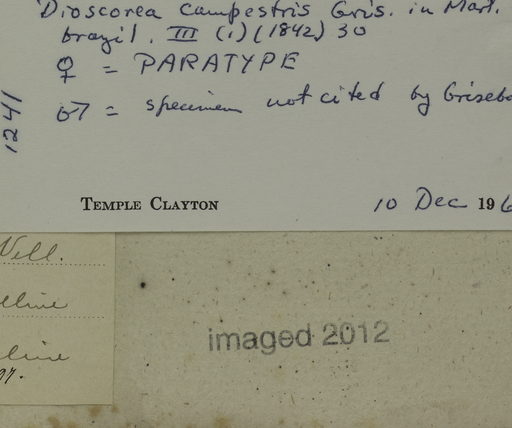 Dioscorea campestris Gris. in Mart.
brazil. III (1) (1842) 30
♀ = PARATYPE
♂ = specimen not cited by Griseb
1241
TEMPLE CLAYTON 10 Dec 196
Vell.
imaged 2012
97.